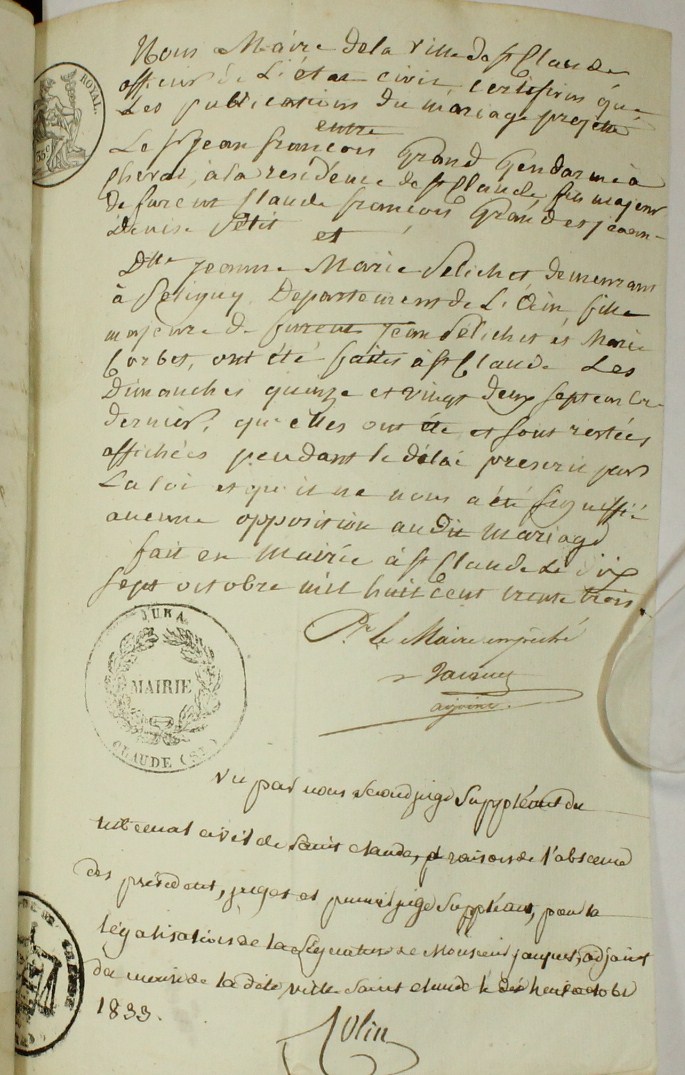 ROYAL.
35 c
Nous Maire de la ville de St Claude
officier de L'état civil, certifions que
Les publications du mariage projetté
entre
Le Sr jean françois Grand Gendarme à
cheval, à la résidence de St Claude fils majeur
de furent Claude françois Grand et jeanne
Denise Petit et
Dlle Jeanne Marie Pelichet demeurant
à Département de L'Ain, fille
majeure de furent Jean Pelichet et Marie
Corbet, ont été faites à St Claude Les
Dimanches quinze et vingt deux septembre
dernier, qu'elles ont été et sont restées
affichées pendant le délai prescrit par
La loi et qu'il ne nous a été signiffié
aucune opposition audit mariage
fait en Mairie à St Claude Le dix
sept octobre mil huit cent trente trois.
Pr le Maire empêché
adjoint
JURA
MAIRIE
CLAUDE (ST)
Vu par nous second juge Suppléant du
tribunal civil de Saint Claude, p raison de l'absence
des président, juges et premier juge Suppléant, pour la
légalisation de la Signature de Monsieur jacquet, adjoint
du maire de la dite ville Saint Claude le dix huit octobre
1833.
Colin